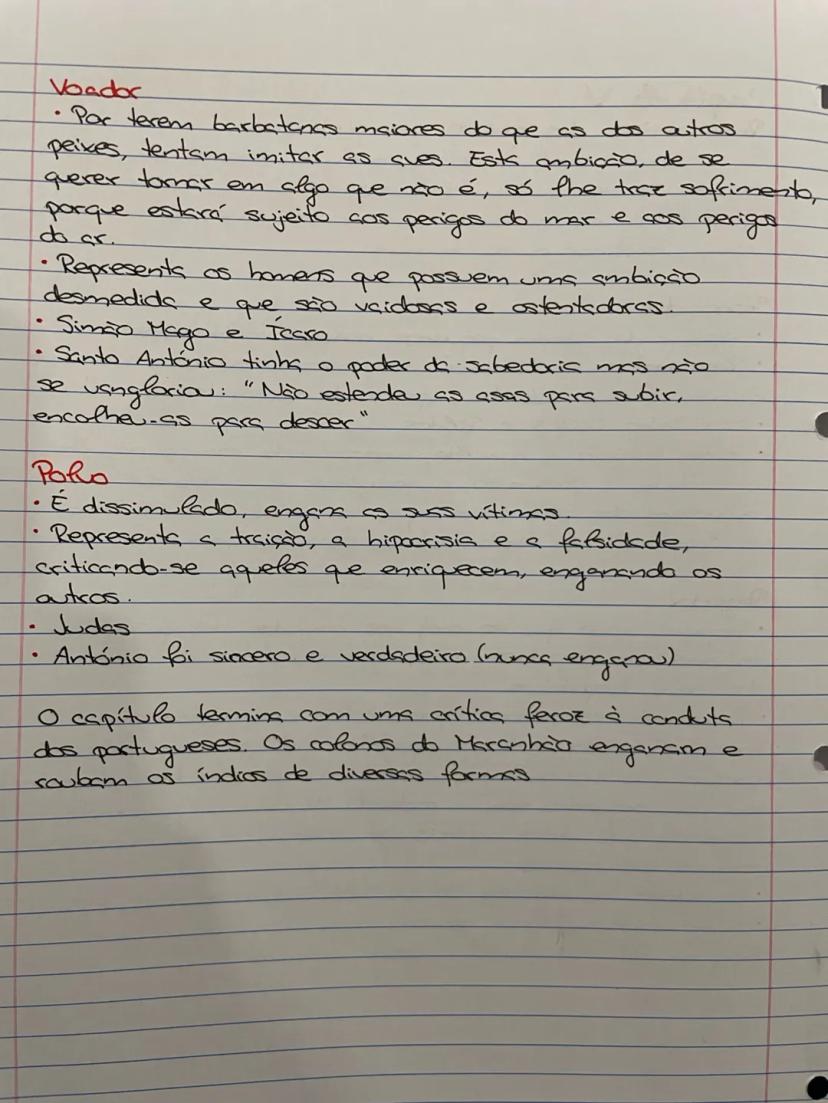 Voador
• Por terem barbatanas maiores do que as dos outros
peixes, tentam imitar as aves. Esta ambição, de se
querer tornar em algo que não é, só lhe traz sofrimento,
porque estará sujeito aos perigos do mar e aos perigos
do ar.
• Representa os homens que possuem uma ambição
desmedida e que são vaidosas e ostentadoras.
• Simão Mago e Ícaro
• Santo António tinha o poder da sabedoria mas não
se vangloria: "Não estende as asas para subir,
encolhe-as para descer"
Polvo
• É dissimulado, engana as suas vítimas.
• Representa a traição, a hipocrisia e a falsidade,
criticando-se aqueles que enriquecem, enganando os
outros.
• Judas
• António foi sincero e verdadeiro (nunca enganou)
O capítulo termina com uma crítica feroz à conduta
dos portugueses. Os colonos do Maranhão enganam e
roubam os índios de diversas formas